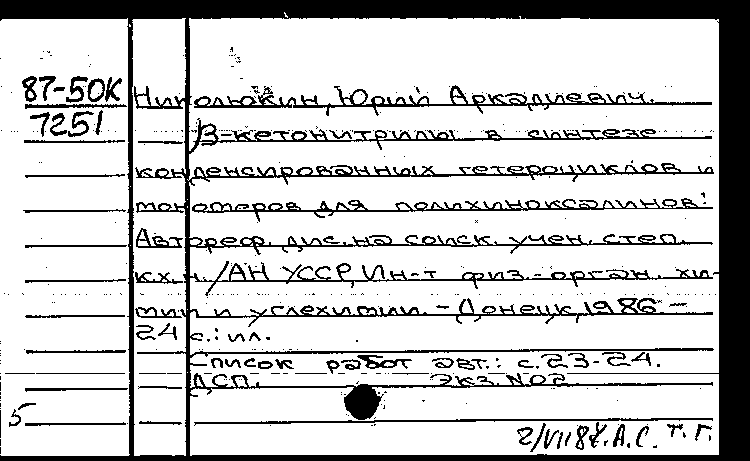 87-50К Николюкин, Юрий Аркадиевич.
7251
β-кетонитрилы в синтезе
конденсированных гетероциклов и
мономеров для полихиноксалинов:
Автореф. дис. на соиск. учен. степ.
к.х.н. /АН УССР, Ин-т физ.-орган. хи-
мии и углехимии. - Донецк, 1986 -
24 с.: ил.
Список работ авт.: с. 23-24.
ДСП. Экз. №02.
5
2/VII 87. А.С. т. г.